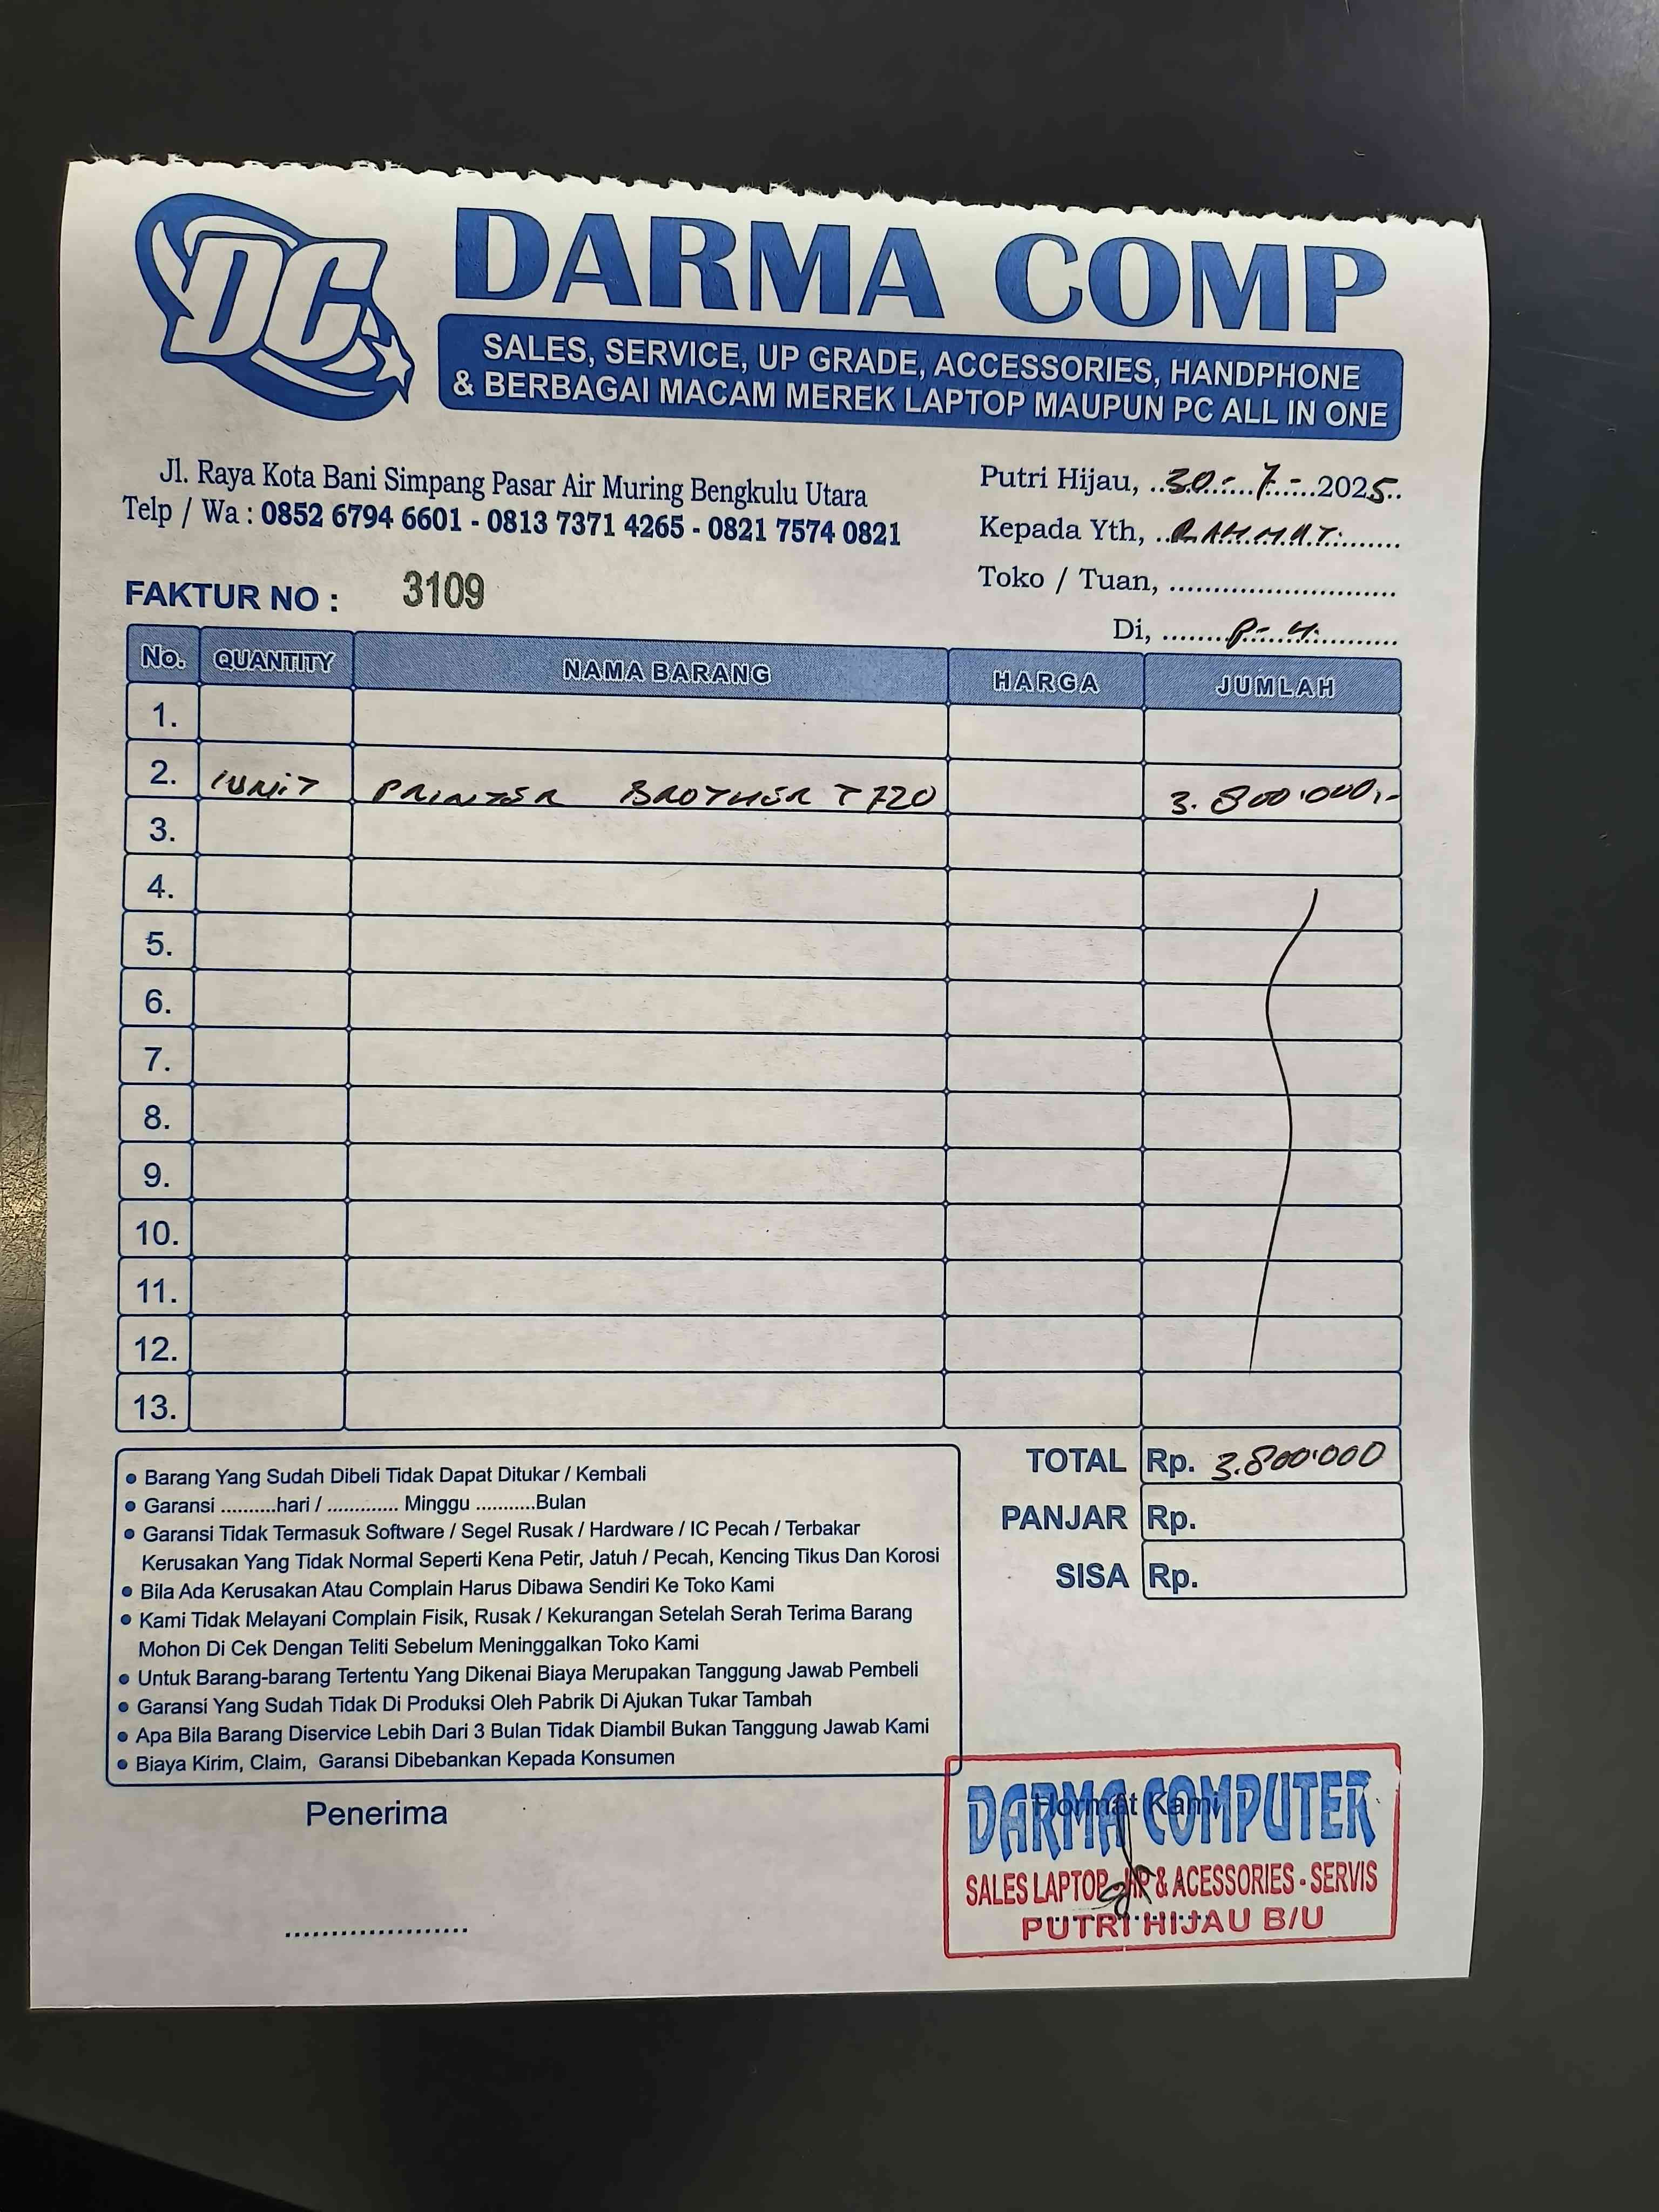 DC
DARMA COMP
SALES, SERVICE, UP GRADE, ACCESSORIES, HANDPHONE
& BERBAGAI MACAM MEREK LAPTOP MAUPUN PC ALL IN ONE
Jl. Raya Kota Bani Simpang Pasar Air Muring Bengkulu Utara
Telp / Wa : 0852 6794 6601 - 0813 7371 4265 - 0821 7574 0821
Putri Hijau, 30 - 7 - 2025
Kepada Yth, RAHMAT
Toko / Tuan, ..........................
Di, P-H
FAKTUR NO : 3109
No. QUANTITY NAMA BARANG HARGA JUMLAH
1.
2. 1 UNIT PRINTER BROTHER T720 3.800.000,-
3.
4.
5.
6.
7.
8.
9.
10.
11.
12.
13.
TOTAL Rp. 3.800.000
PANJAR Rp.
SISA Rp.
• Barang Yang Sudah Dibeli Tidak Dapat Ditukar / Kembali
• Garansi ..........hari / ............. Minggu ...........Bulan
• Garansi Tidak Termasuk Software / Segel Rusak / Hardware / IC Pecah / Terbakar
Kerusakan Yang Tidak Normal Seperti Kena Petir, Jatuh / Pecah, Kencing Tikus Dan Korosi
• Bila Ada Kerusakan Atau Complain Harus Dibawa Sendiri Ke Toko Kami
• Kami Tidak Melayani Complain Fisik, Rusak / Kekurangan Setelah Serah Terima Barang
Mohon Di Cek Dengan Teliti Sebelum Meninggalkan Toko Kami
• Untuk Barang-barang Tertentu Yang Dikenai Biaya Merupakan Tanggung Jawab Pembeli
• Garansi Yang Sudah Tidak Di Produksi Oleh Pabrik Di Ajukan Tukar Tambah
• Apa Bila Barang Diservice Lebih Dari 3 Bulan Tidak Diambil Bukan Tanggung Jawab Kami
• Biaya Kirim, Claim, Garansi Dibebankan Kepada Konsumen
Penerima
Hormat Kami
DARMA COMPUTER
SALES LAPTOP - HP & ACESSORIES - SERVIS
PUTRI HIJAU B/U